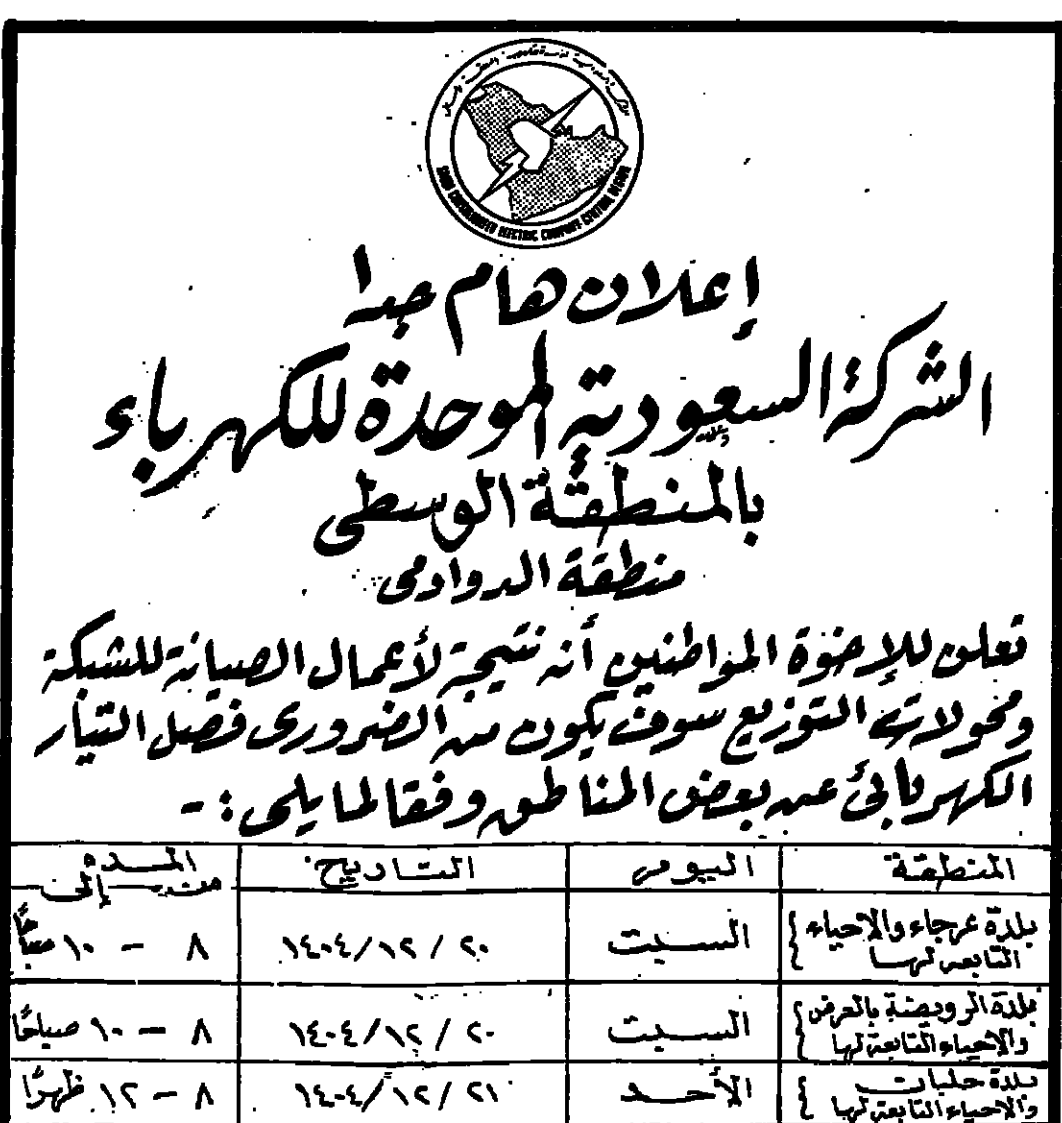 SAUDI CONSOLIDATED ELECTRIC COMPANY CENTRAL REGION
إعلان هام جدا
الشركة السعودية الموحدة للكهرباء
بالمنطقة الوسطى
منطقة الدوادمى
تعلن للإخوة المواطنين أنه نتيجة لأعمال الصيانة للشبكة
ومحولات التوزيع سوف يكون من الضرورى فصل التيار
الكهربائى عن بعض المناطق وفقا لما يلى :-
المنطقة اليوم التاريخ المده من - إلى
بلدة عرجاء والاحياء التابعه لها السبت ٢٠ / ١٢ / ١٤٠٤ ٨ - ١٠ صباحًا
بلدة الرويضة بالعرض والاحياء التابعة لها السبت ٢٠ / ١٢ / ١٤٠٤ ٨ - ١٠ صباحًا
بلدة حلبات والاحياء التابعة لها الأحد ٢١ / ١٢ / ١٤٠٤ ٨ - ١٢ ظهرًا